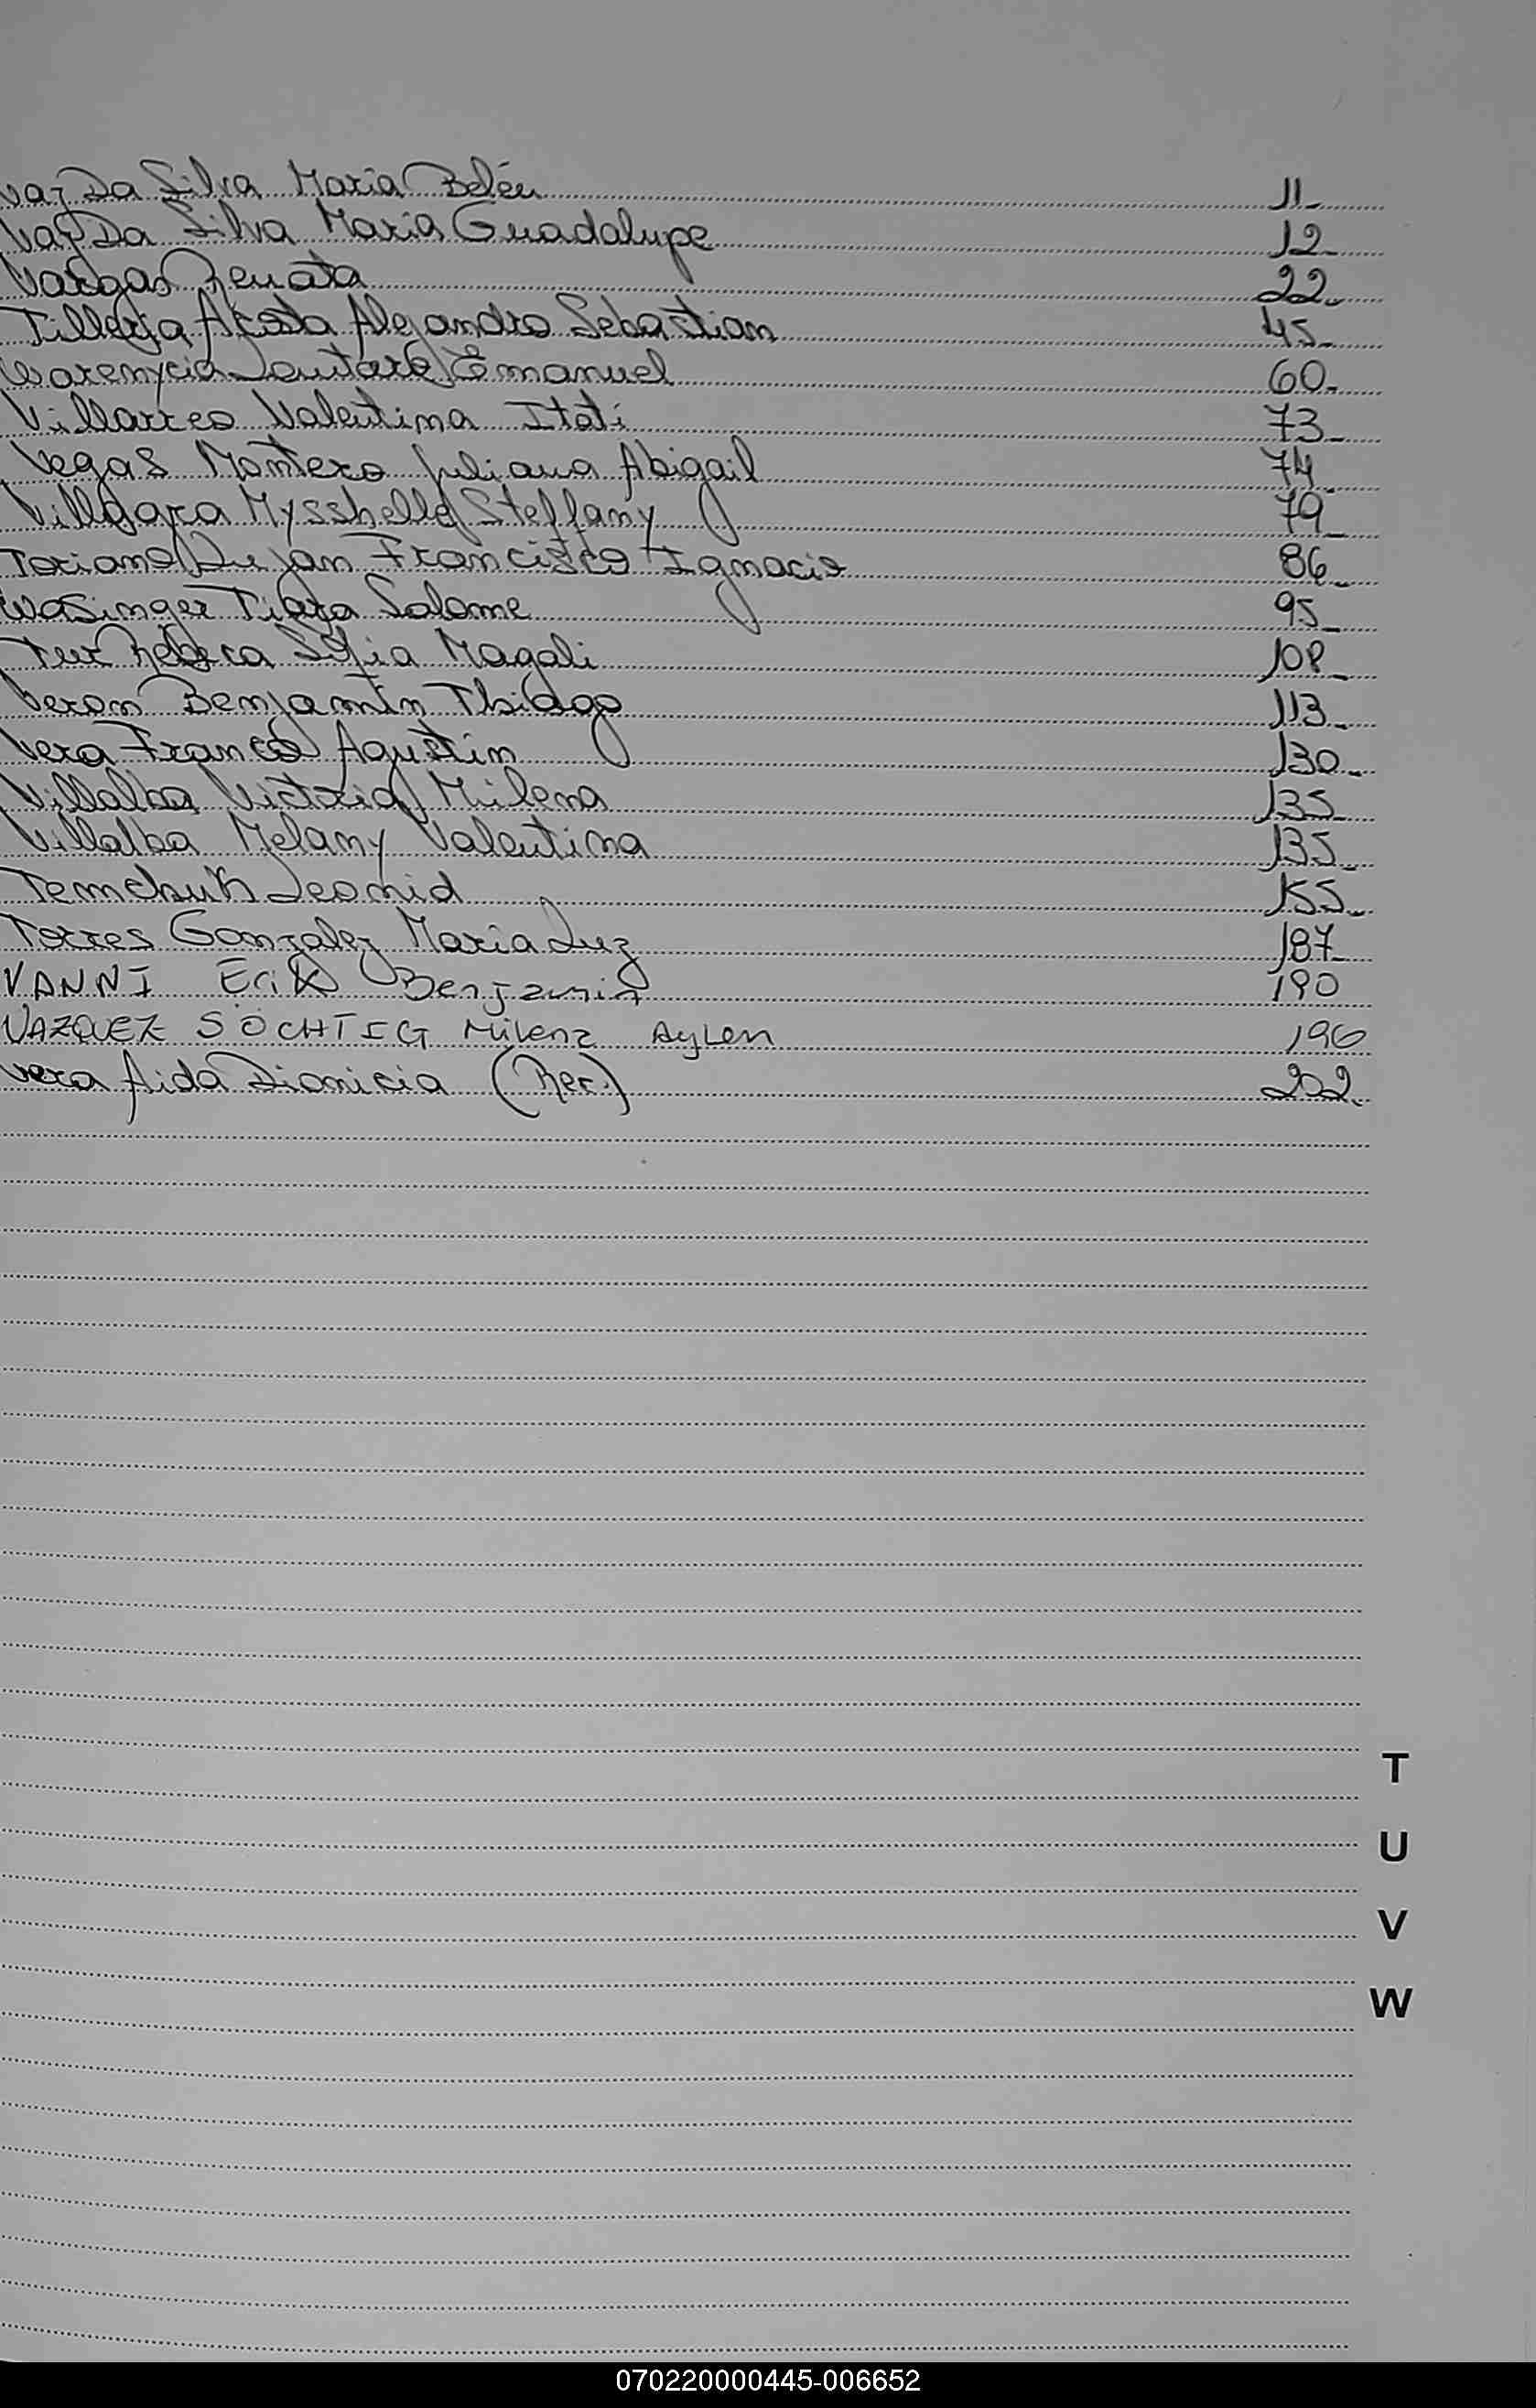 Vaz Da Silva Maria Belén 11
Vaz Da Silva Maria Guadalupe 12
Vargas Renata 22
Tilleria Acosta Alejandro Sebastian 45
Warenycia Lautaro Emanuel 60
Villarreo Valentina Itati 73
Vegas Montero Juliana Abigail 74
Villagara Mysshelle Steffany 79
Toriano Lujan Francisco Ignacio 86
Wasinger Tiara Salome 95
Rebeca Sofia Magali 108
Veron Benjamin Thiago 113
Vera Franco Agustin 130
Villalba Victoria Milena 135
Villalba Melany Valentina 135
Temchuk Leonid 155
Torres Gonzalez Maria Luz 187
VANNI Erik Benjamin 190
VAZQUEZ SÖCHTIG Milena Aylen 196
Vera Aida Dionicia (Rec.) 202
T
U
V
W
070220000445-006652